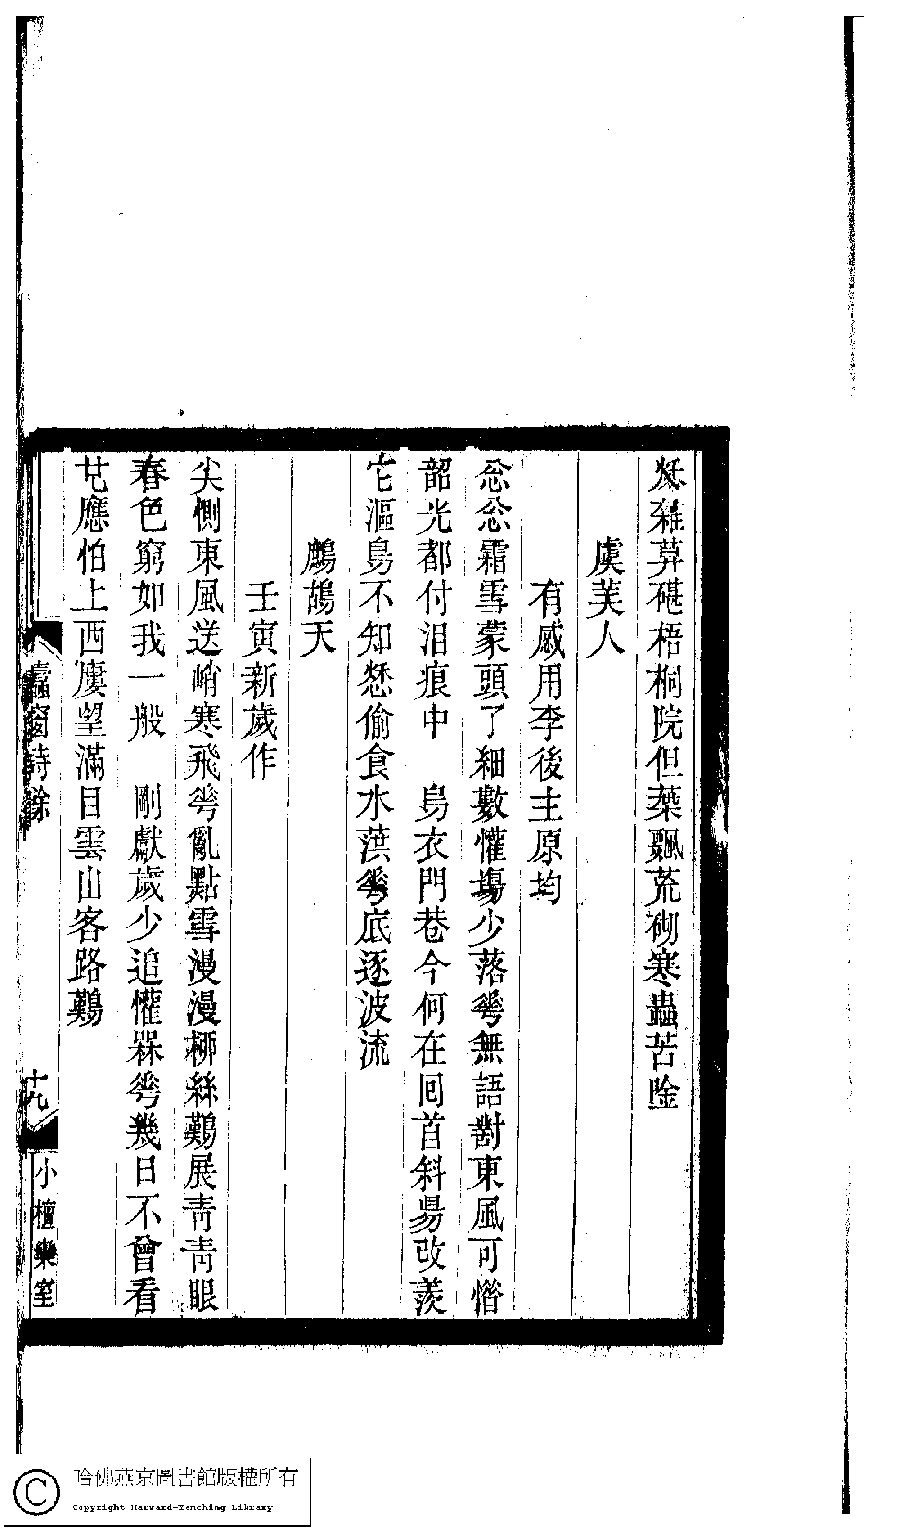 雜葬碪梧桐院但葉飄荒砌寒蟲苦唫
虞美人
有感用李後主原均
忩忩霜雪蒙頭了細數懽場少落蕐無語對東風可惜
韶光都付泪痕中　烏衣門巷今何在回首斜昜改羨
它漚鳧不知愁偷食水葓蕐底逐波流
鷓鴣天
壬寅新歲作
尖側東風送峭寒飛蕐亂點雪漫漫桺絲難展青青眼
春色窮如我一般　剛獻歲少追懽槑蕐幾日不曾看
應怕上西廔望滿目雲山客路難
蠹窗詩餘
十九
小檀欒室
哈佛燕京圖書館版權所有
Copyright Harvard-Yenching Library